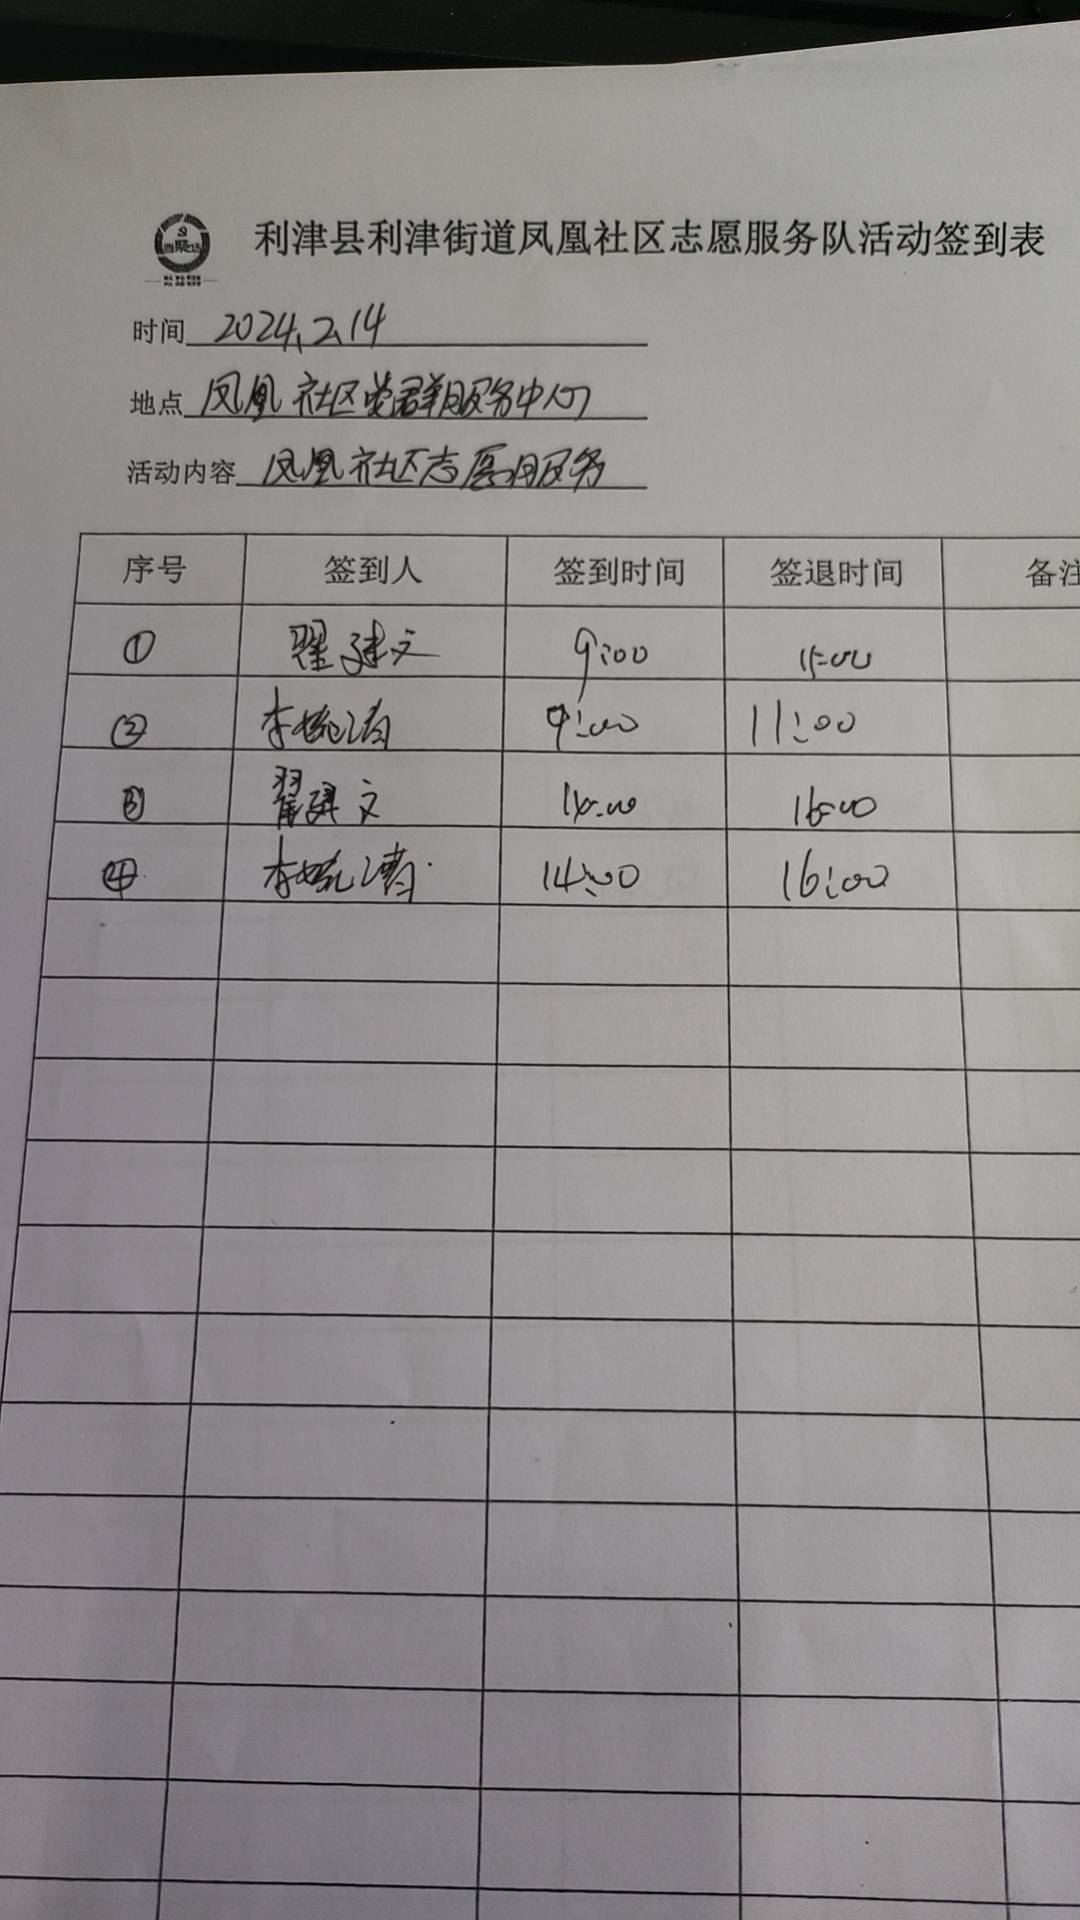 利津县利津街道凤凰社区志愿服务队活动签到表
时间 2024.2.14
地点 凤凰社区党群服务中心
活动内容 凤凰社区志愿服务
序号 签到人 签到时间 签退时间 备注
① 翟建文 9:00
② 李 清 9:00 11:00
③ 翟建文 14:00 16:00
④ 李 清 14:00 16:00